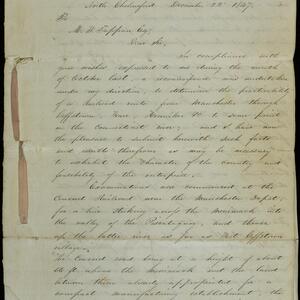 North Chelmsford, December 22d 1847.
To
M. W. Tappan Esq;
Dear Sir,
In compliance with
your wishes, expressed to me during the month of
October last, a reconnaissance was undertaken
under my direction, to determine the practicability
of a Railroad route from Manchester through
Goffstown, Weare, Henniker &c to some point
on the Connecticut river; and I have now
the pleasure to submit herewith such facts
and results therefrom as may be necessary
to exhibit the character of the country and
feasibility of the enterprise.
Examinations were commenced at the
Concord Railroad near the Manchester Depot,
for a line striking across the Merrimack into
the valley of the Piscataquog, and thence
up the latter river as far as West Goffstown
village.
The Concord road being at a height of about
feet above the Merrimack and the land
between them already appropriated for a
compact manufacturing establishment, the